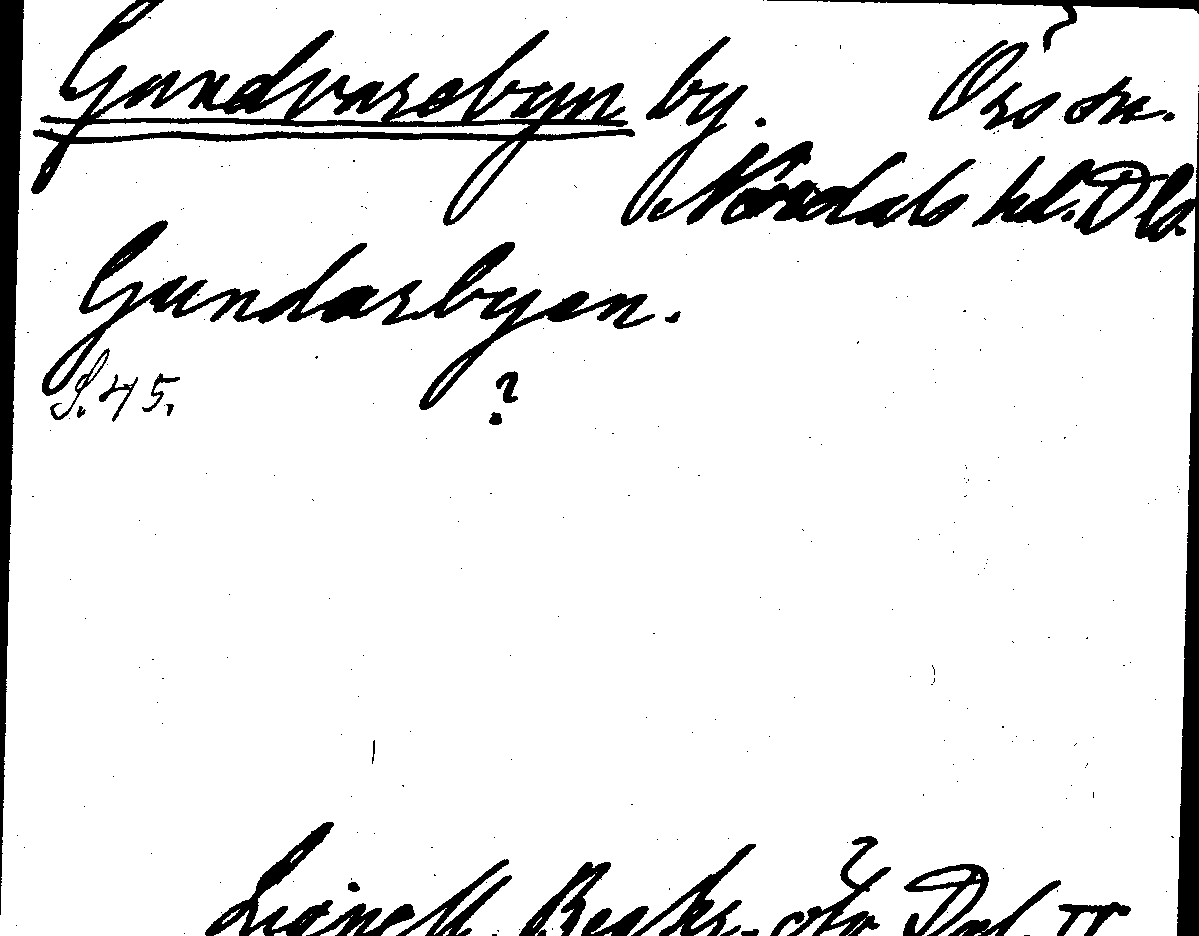 Gundvarebyn by. Örs sn.
Nordals hd. Dld.
Gundarbyen.
S. 45. ?
Lignell, Beskr. öfv. Dal. II